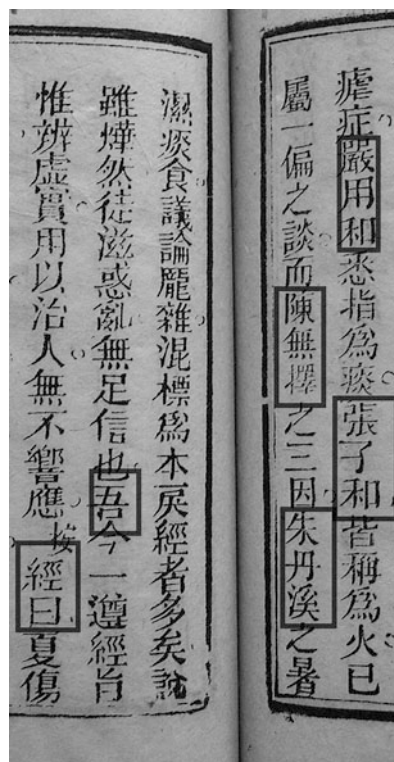 瘧症嚴用和悉指爲痰張子和皆稱爲火已
屬一偏之談而陳無擇之三因朱丹溪之暑
濕痰食議論龎雜混標爲本戾經者多矣說
雖燁然徒滋惑亂無足信也吾今一遵經旨
惟辨虛實用以治人無不響應按經曰夏傷